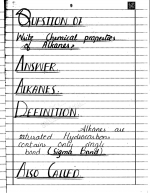 QUESTION 01
Write Chemical properties
of Alkanes.
ANSWER.
ALKANES.
DEFINITION.
Alkanes are
saturated Hydrocarbons
contains only single
bond (Sigma Bond).
ALSO CALLED.